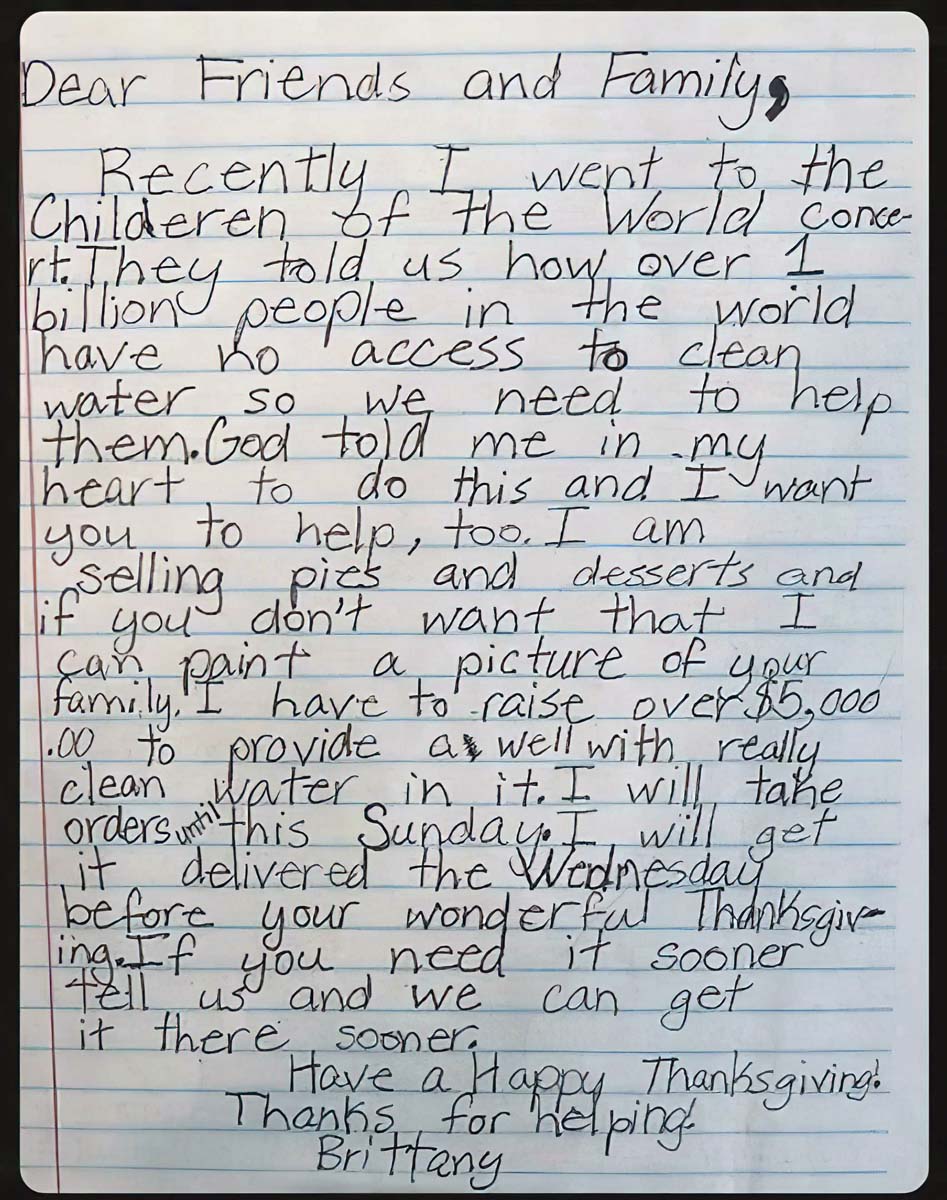 Dear Friends and Family,
Recently I went to the
Childeren of the World conce-
rt. They told us how over 1
billion people in the world
have no access to clean
water so we need to help
them. God told me in my
heart to do this and I want
you to help, too. I am
selling pies and desserts and
if you don't want that I
can paint a picture of your
family. I have to raise over $5,000
.00 to provide a well with really
clean water in it. I will take
orders until this Sunday. I will get
it delivered the Wednesday
before your wonderful Thanksgiv-
ing. If you need it sooner
tell us and we can get
it there sooner.
Have a Happy Thanksgiving!
Thanks for helping!
Brittany